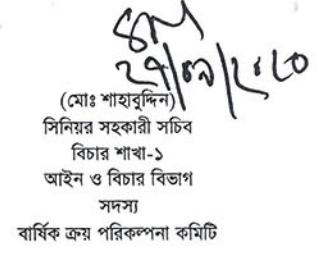 ২৭/০৯/২০২০
(মোঃ শাহাবুদ্দিন)
সিনিয়র সহকারী সচিব
বিচার শাখা-১
আইন ও বিচার বিভাগ
সদস্য
বার্ষিক ক্রয় পরিকল্পনা কমিটি